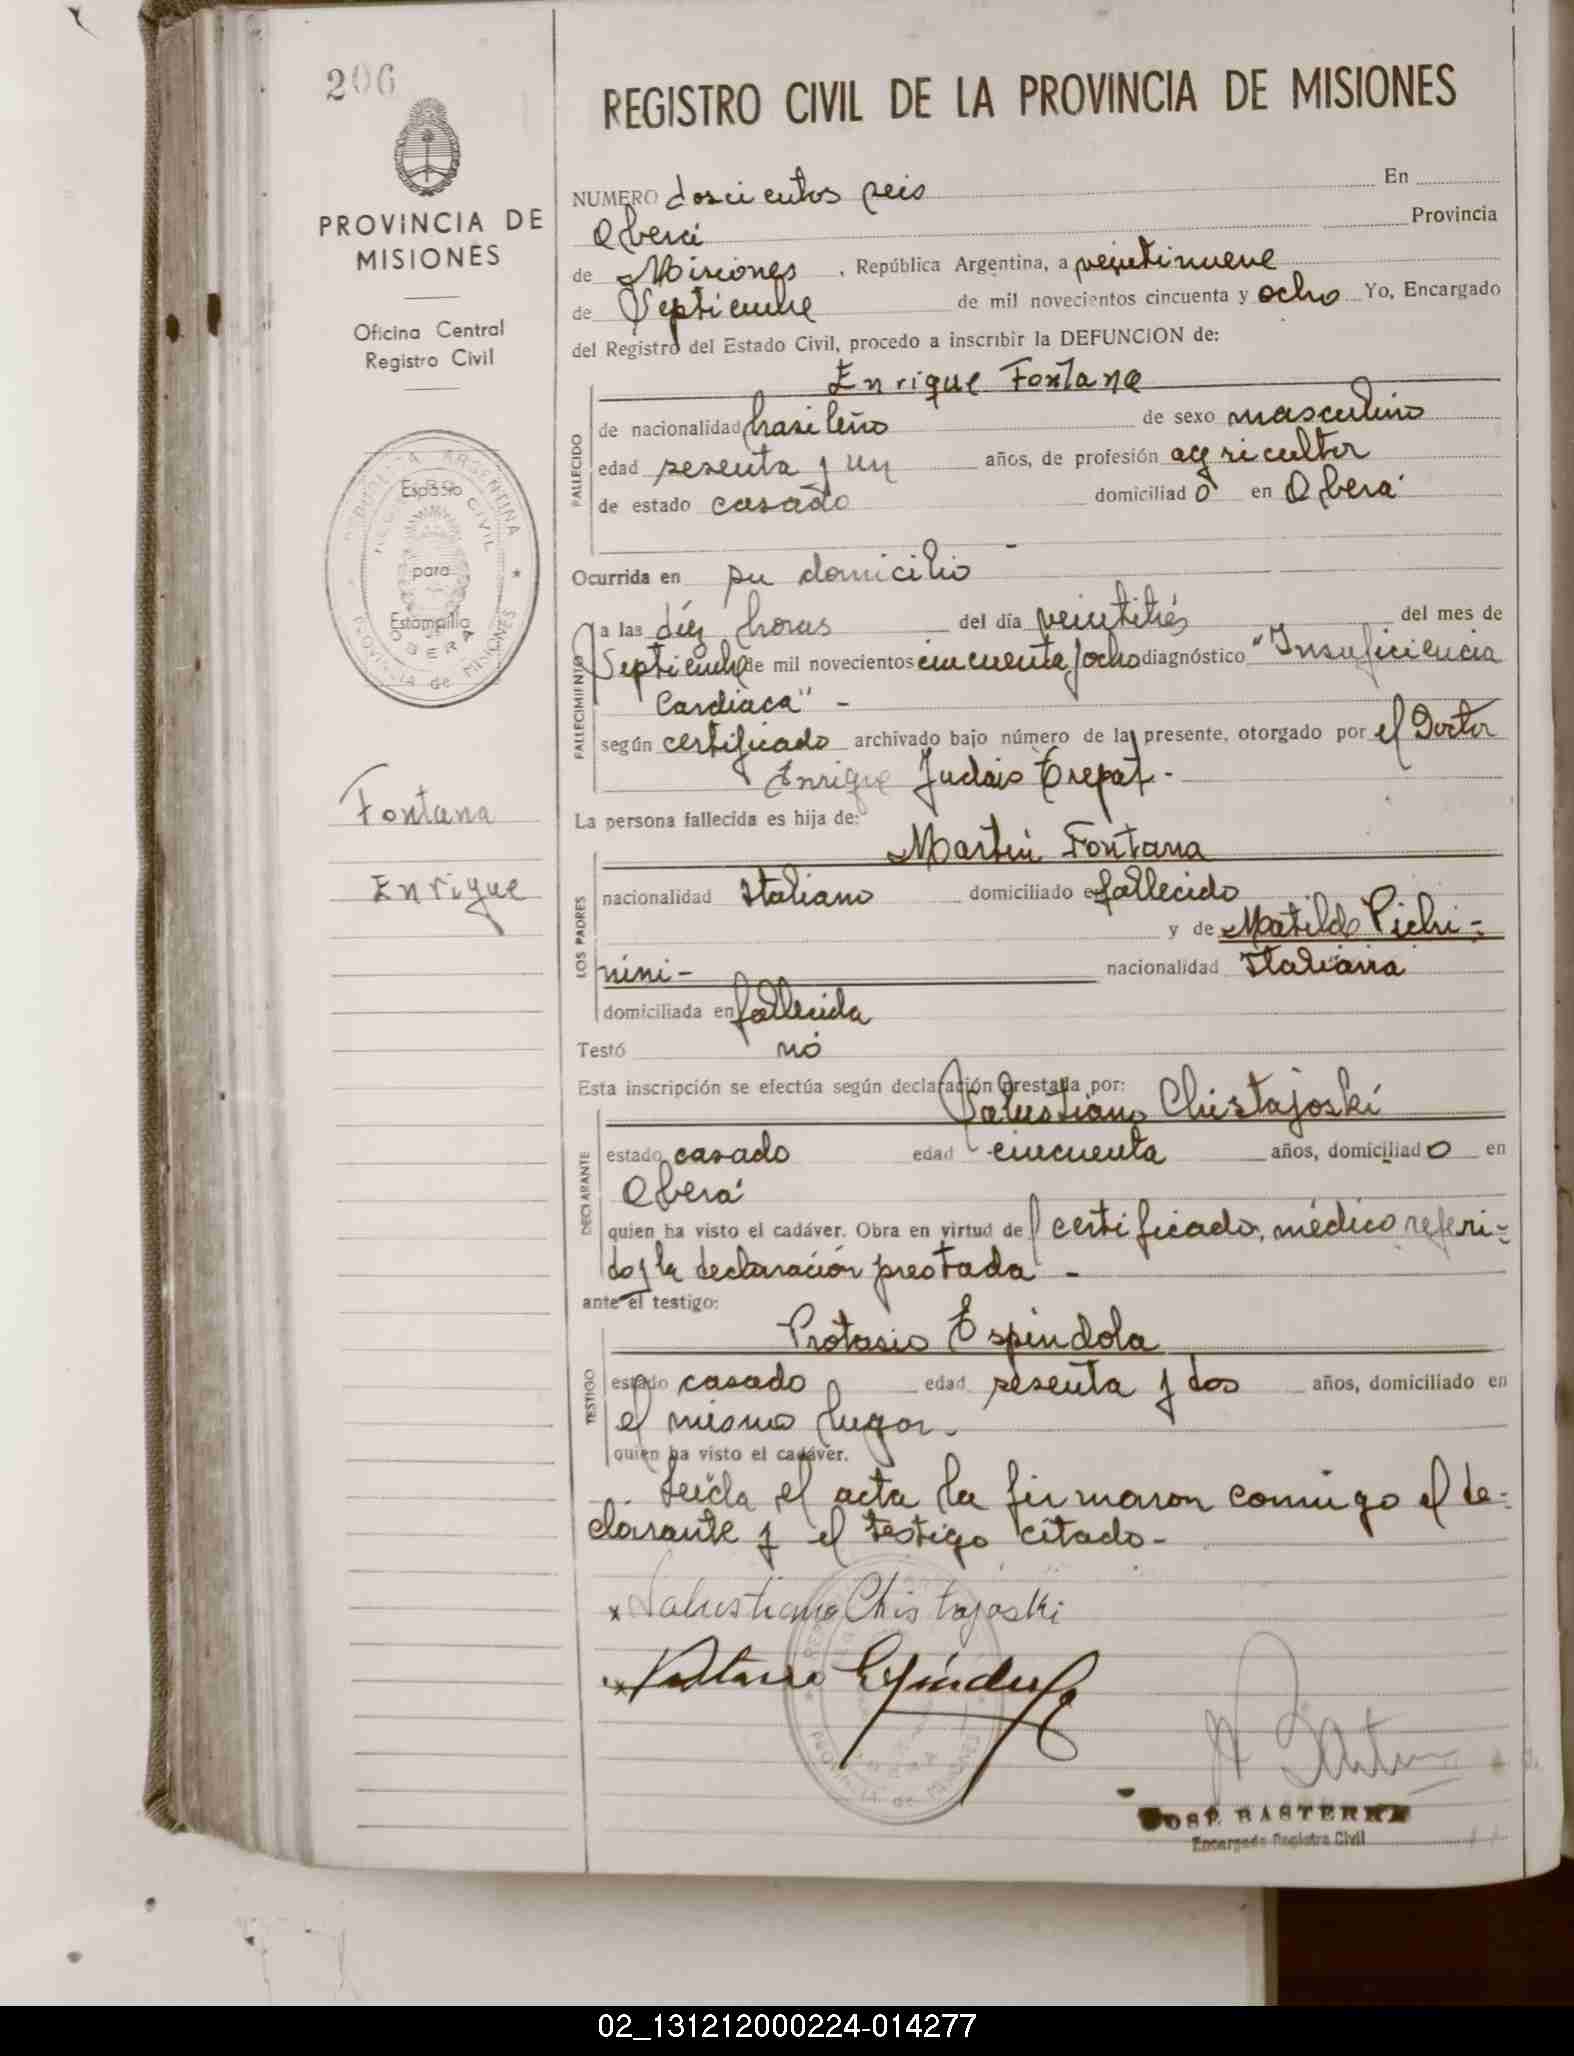 206
PROVINCIA DE
MISIONES
Oficina Central
Registro Civil
REPUBLICA ARGENTINA
REGISTRO CIVIL
Espacio
para
Estampilla
OBERA
PROVINCIA de MISIONES
Fontana
Enrique
REGISTRO CIVIL DE LA PROVINCIA DE MISIONES
NUMERO doscientos seis En
Oberá Provincia
de Misiones, República Argentina, a veintinueve
de Septiembre de mil novecientos cincuenta y ocho Yo, Encargado
del Registro del Estado Civil, procedo a inscribir la DEFUNCION de:
Enrique Fontana
FALLECIDO
de nacionalidad brasileño de sexo masculino
edad sesenta y un años, de profesión agricultor
de estado casado domiciliad o en Oberá
Ocurrida en su domicilio -
FALLECIMIENTO
a las diéz horas del día veintitrés del mes de
Septiembre de mil novecientos cincuenta y ocho diagnóstico "Insuficiencia
Cardiaca" -
según certificado archivado bajo número de la presente, otorgado por el Doctor
Enrique Trepat -
La persona fallecida es hija de:
LOS PADRES
Martin Fontana
nacionalidad Italiano domiciliado en fallecido
y de Matilde Pichi-
nini - nacionalidad Italiana
domiciliada en fallecida
Testó nó
Esta inscripción se efectúa según declaración prestada por:
DECLARANTE
Salustiano Chistajoski
estado casado edad cincuenta años, domiciliad o en
Oberá
quien ha visto el cadáver. Obra en virtud del certificado, médico referi-
do y la declaración prestada -
ante el testigo:
TESTIGO
Protasio Espindola
estado casado edad sesenta y dos años, domiciliado en
el mismo lugar.
quien ha visto el cadáver.
Leída el acta la firmaron conmigo el de-
clarante y el testigo citado -
x Salustiano Chistajoski
x Protasio Espindola
PROVINCIA de MISIONES
JOSE BASTERRA
Encargado Registro Civil
02_131212000224-014277